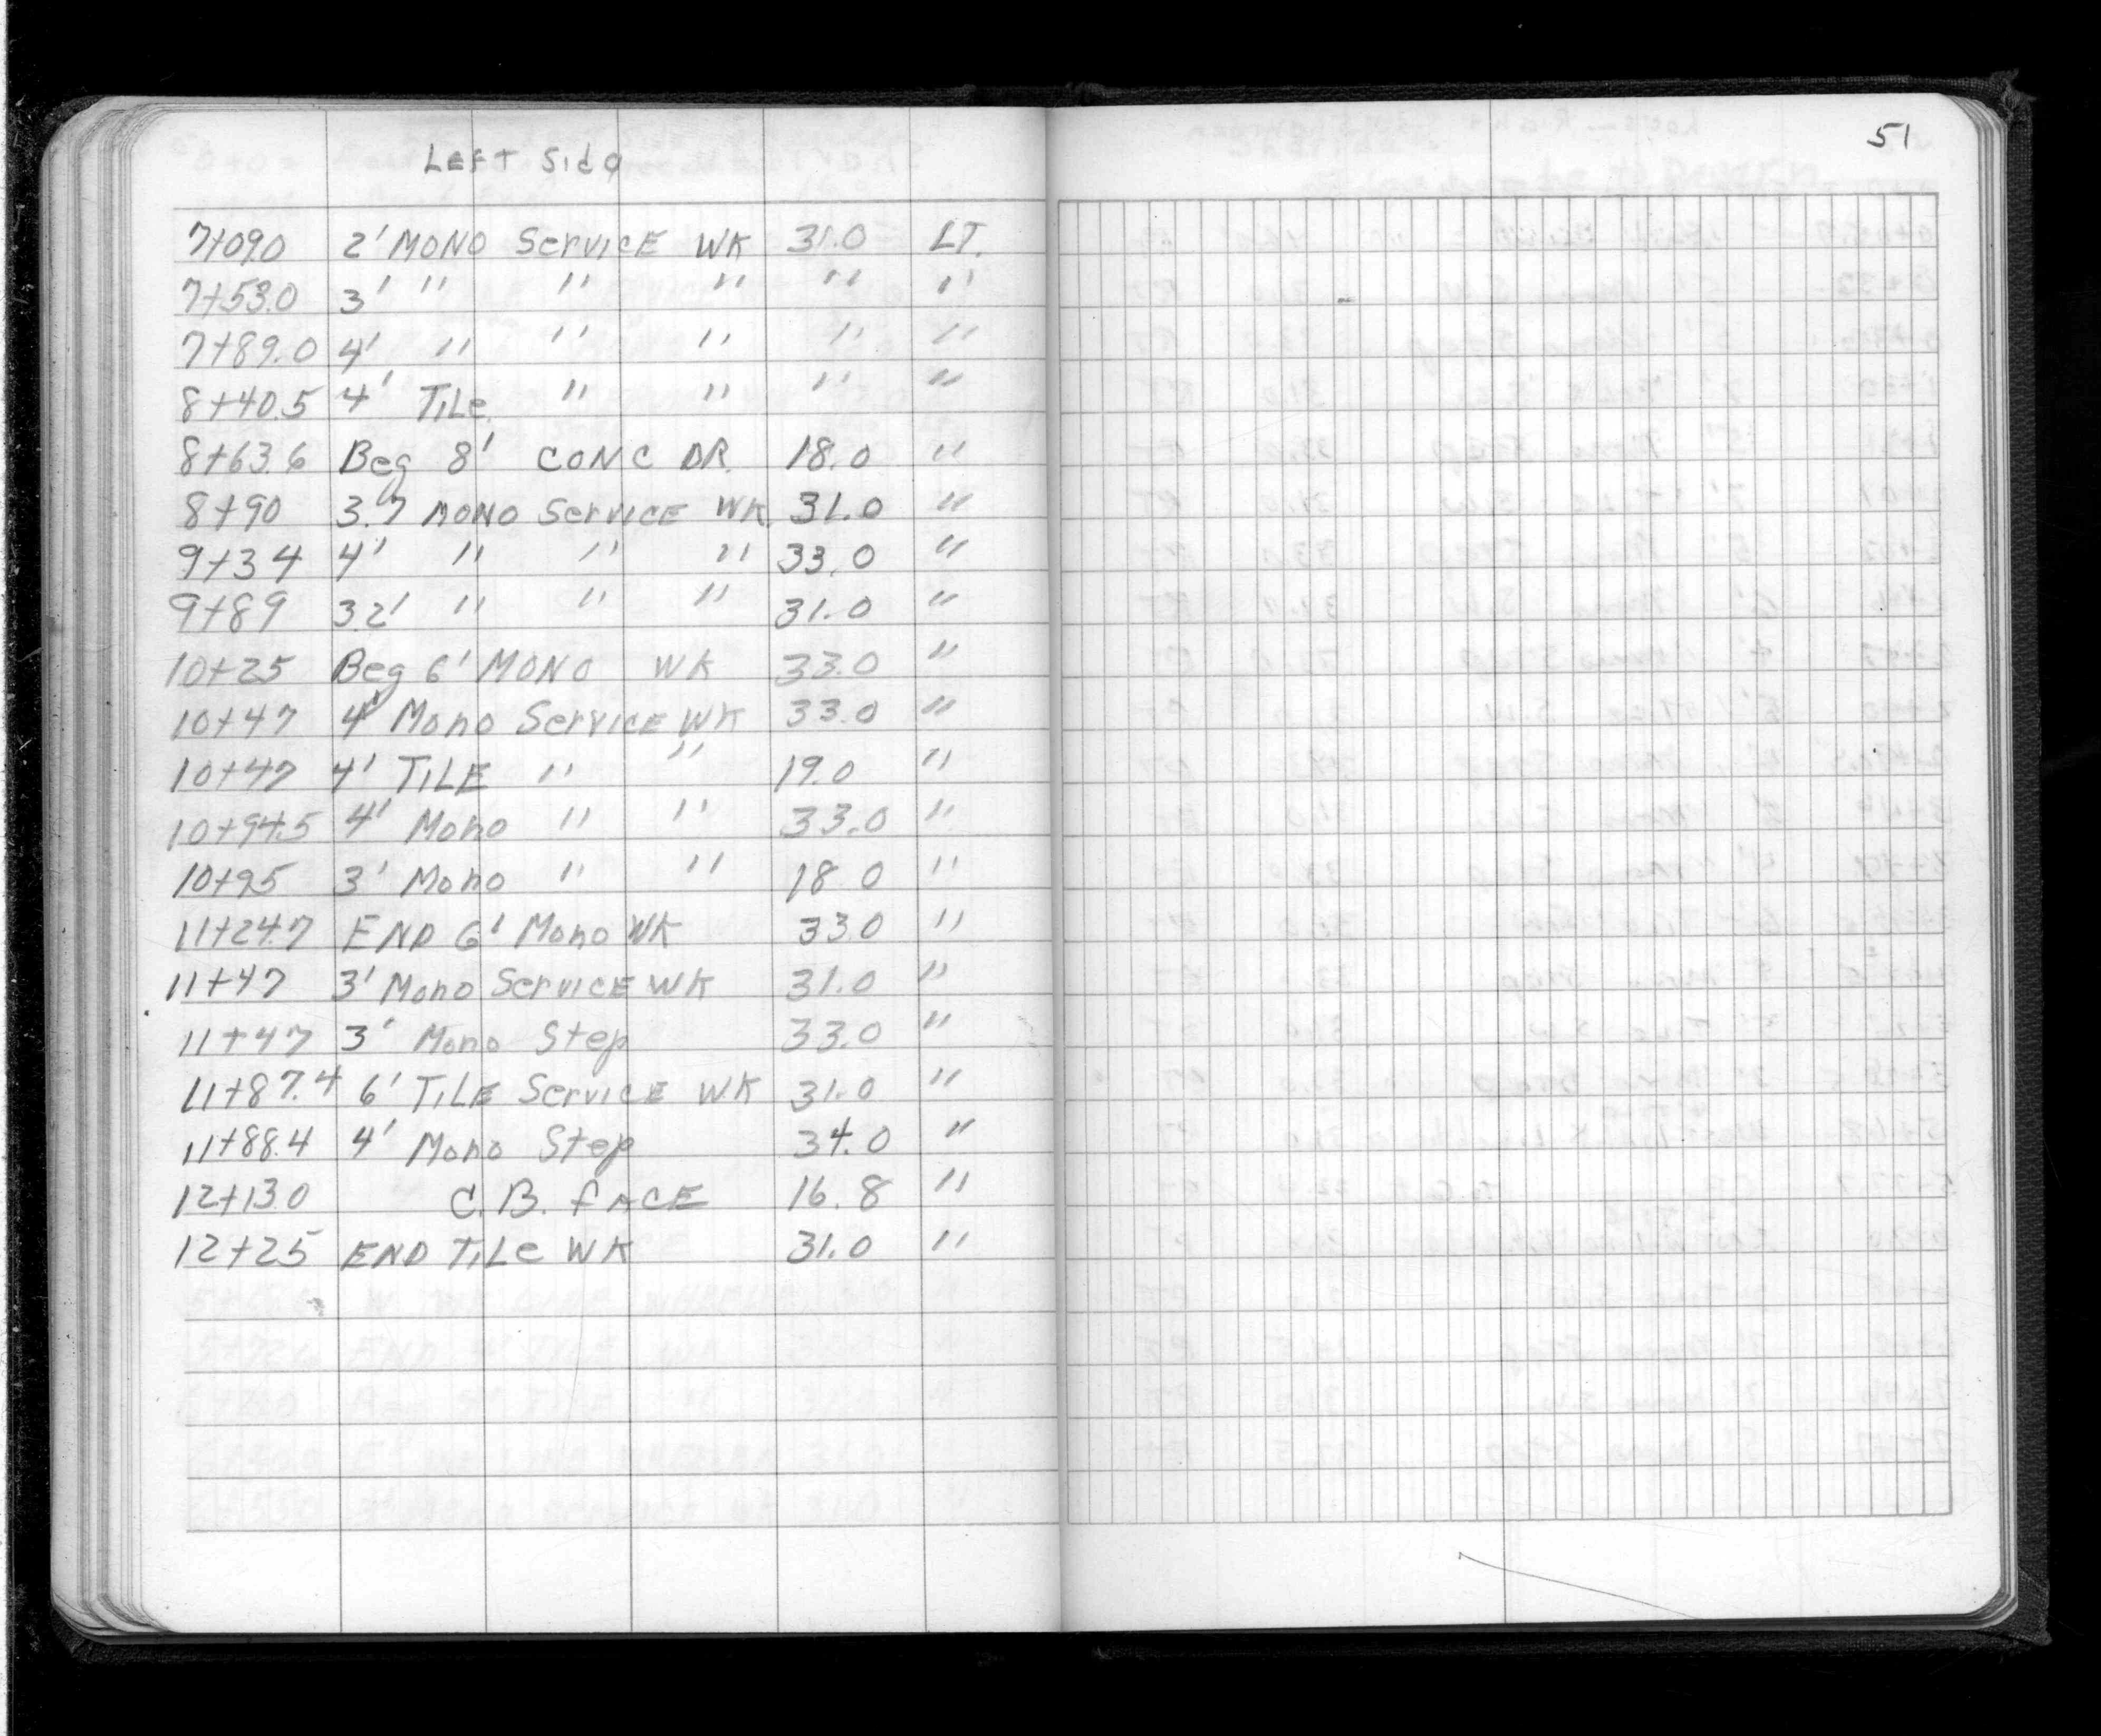 Left Side
51
7+09.0 2' MONO Service WK 31.0 LT.
7+53.0 3' " " " " "
7+89.0 4' " " " " "
8+40.5 4' TILE " " " "
8+63.6 Beg 8' CONC DR. 18.0 "
8+90 3.7 MONO Service WK 31.0 "
9+34 4' " " " 33.0 "
9+89 3.2' " " " 31.0 "
10+25 Beg 6' MONO WK 33.0 "
10+47 4' Mono Service WK 33.0 "
10+47 4' TILE " " 19.0 "
10+94.5 4' Mono " " 33.0 "
10+95 3' Mono " " 18.0 "
11+24.7 END 6' Mono WK 33.0 "
11+47 3' Mono Service WK 31.0 "
11+47 3' Mono Step 33.0 "
11+87.4 6' TILE Service WK 31.0 "
11+88.4 4' Mono Step 34.0 "
12+13.0 C.B. fACE 16.8 "
12+25 END TILE WK 31.0 "